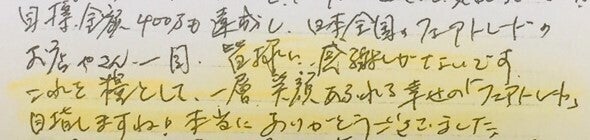 目標金額400万も達成し、日本全国のフェアトレードの
お店やさん一同、皆様に感謝しかないです
これを糧として、一層笑顔あふれる幸せの「フェアトレード」
目指しますね!本当にありがとうございました。